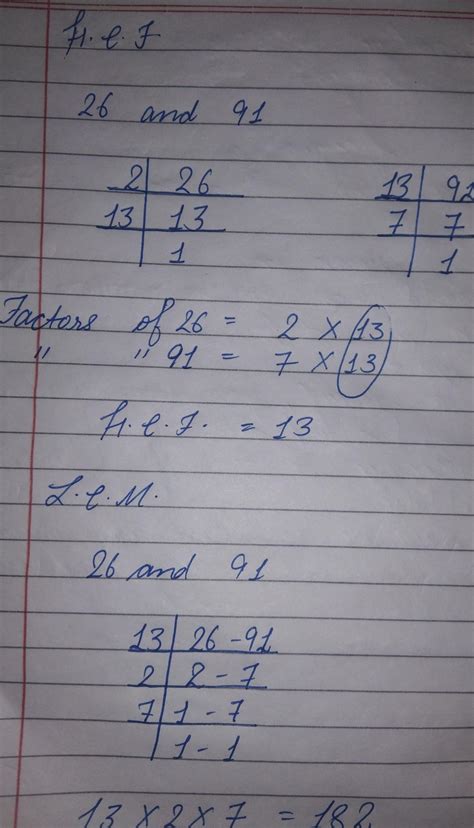 H.C.F
26 and 91
2 | 26
13 | 13
1
13 | 92
7 | 7
1
Factors of 26 = 2 × 13
" " 91 = 7 × 13
H.C.F. = 13
L.C.M.
26 and 91
13 | 26 - 91
2 | 2 - 7
7 | 1 - 7
1 - 1
13 × 2 × 7 = 182